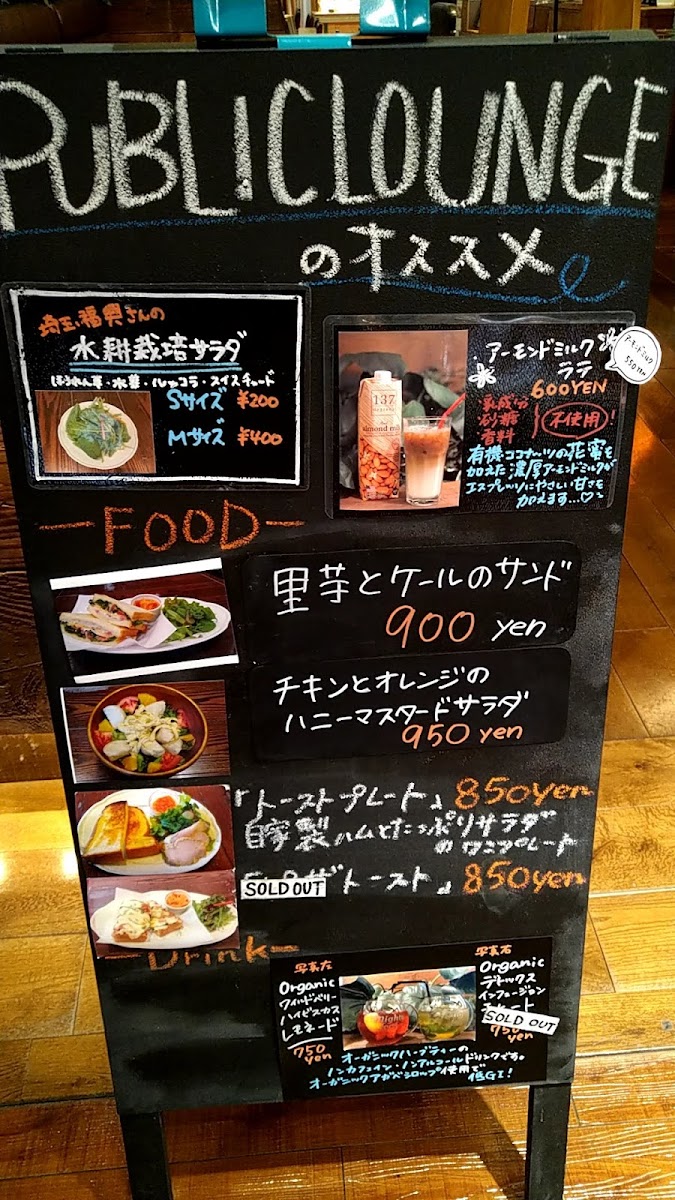 PUBLIC LOUNGE
のオススメ
埼玉福興さんの
水耕栽培サラダ
ほうれん草・水菜・ルッコラ・スイスチャード
Sサイズ ¥200
Mサイズ ¥400
アーモンドミルク
ラテ
600YEN
アーモンドミルク
550Yen
乳成分
砂糖
香料
不使用!
有機ココナッツの花蜜を
加えた濃厚アーモンドミルクが
エスプレッソにやさしい甘さを
加えます…♡
137
almond milk
FOOD
里芋とケールのサンド
900 yen
チキンとオレンジの
ハニーマスタードサラダ
950 yen
「トーストプレート」 850yen
自家製ハムとたっぷりサラダ
のワンプレート
SOLD OUT
トースト」 850yen
Drink
写真左
Organic
ワイルドベリー
ハイビスカス
レモネード
750
yen
写真右
Organic
デトックス
インフュージョン
SOLD OUT
750
yen
オーガニックハーブティーの
ノンカフェイン・ノンアルコールドリンクです。
オーガニックアガベシロップ使用で
低GI!